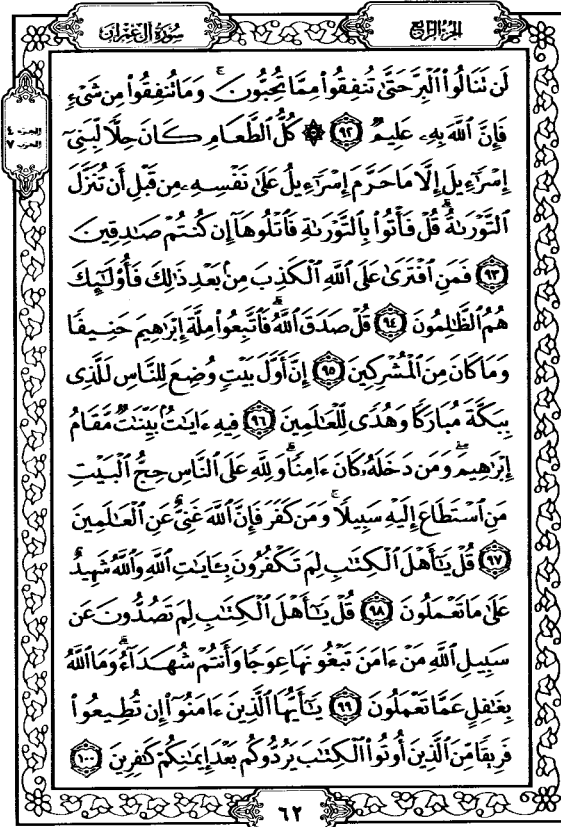 سُورَةُ آلِ عِمْرَانَ
الجزء الرابع
لَن تَنَالُوا۟ ٱلْبِرَّ حَتَّىٰ تُنفِقُوا۟ مِمَّا تُحِبُّونَ ۚ وَمَا تُنفِقُوا۟ مِن شَىْءٍ
فَإِنَّ ٱللَّهَ بِهِۦ عَلِيمٌ ٩٢ ۞ كُلُّ ٱلطَّعَامِ كَانَ حِلًّا لِّبَنِىٓ
إِسْرَٰٓءِيلَ إِلَّا مَا حَرَّمَ إِسْرَٰٓءِيلُ عَلَىٰ نَفْسِهِۦ مِن قَبْلِ أَن تُنَزَّلَ
ٱلتَّوْرَىٰةُ ۗ قُلْ فَأْتُوا۟ بِٱلتَّوْرَىٰةِ فَٱتْلُوهَآ إِن كُنتُمْ صَٰدِقِينَ
٩٣ فَمَنِ ٱفْتَرَىٰ عَلَى ٱللَّهِ ٱلْكَذِبَ مِنۢ بَعْدِ ذَٰلِكَ فَأُو۟لَٰٓئِكَ
هُمُ ٱلظَّٰلِمُونَ ٩٤ قُلْ صَدَقَ ٱللَّهُ ۗ فَٱتَّبِعُوا۟ مِلَّةَ إِبْرَٰهِيمَ حَنِيفًا
وَمَا كَانَ مِنَ ٱلْمُشْرِكِينَ ٩٥ إِنَّ أَوَّلَ بَيْتٍ وُضِعَ لِلنَّاسِ لَلَّذِى
بِبَكَّةَ مُبَارَكًا وَهُدًى لِّلْعَٰلَمِينَ ٩٦ فِيهِ ءَايَٰتٌۢ بَيِّنَٰتٌ مَّقَامُ
إِبْرَٰهِيمَ ۖ وَمَن دَخَلَهُۥ كَانَ ءَامِنًا ۗ وَلِلَّهِ عَلَى ٱلنَّاسِ حِجُّ ٱلْبَيْتِ
مَنِ ٱسْتَطَاعَ إِلَيْهِ سَبِيلًا ۚ وَمَن كَفَرَ فَإِنَّ ٱللَّهَ غَنِىٌّ عَنِ ٱلْعَٰلَمِينَ
٩٧ قُلْ يَٰٓأَهْلَ ٱلْكِتَٰبِ لِمَ تَكْفُرُونَ بِـَٔايَٰتِ ٱللَّهِ وَٱللَّهُ شَهِيدٌ
عَلَىٰ مَا تَعْمَلُونَ ٩٨ قُلْ يَٰٓأَهْلَ ٱلْكِتَٰبِ لِمَ تَصُدُّونَ عَن
سَبِيلِ ٱللَّهِ مَنْ ءَامَنَ تَبْغُونَهَا عِوَجًا وَأَنتُمْ شُهَدَآءُ ۗ وَمَا ٱللَّهُ
بِغَٰفِلٍ عَمَّا تَعْمَلُونَ ٩٩ يَٰٓأَيُّهَا ٱلَّذِينَ ءَامَنُوٓا۟ إِن تُطِيعُوا۟
فَرِيقًا مِّنَ ٱلَّذِينَ أُوتُوا۟ ٱلْكِتَٰبَ يَرُدُّوكُم بَعْدَ إِيمَٰنِكُمْ كَٰفِرِينَ ١٠٠
الجزء ٤
الحزب ٧
٦٢